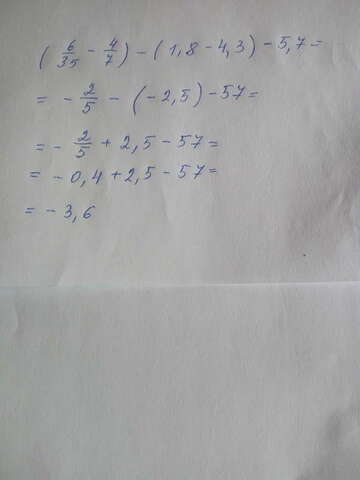 ( 6/35 - 4/7 ) - ( 1,8 - 4,3 ) - 5,7 =
= - 2/5 - ( - 2,5 ) - 57 =
= - 2/5 + 2,5 - 57 =
= - 0,4 + 2,5 - 57 =
= - 3,6